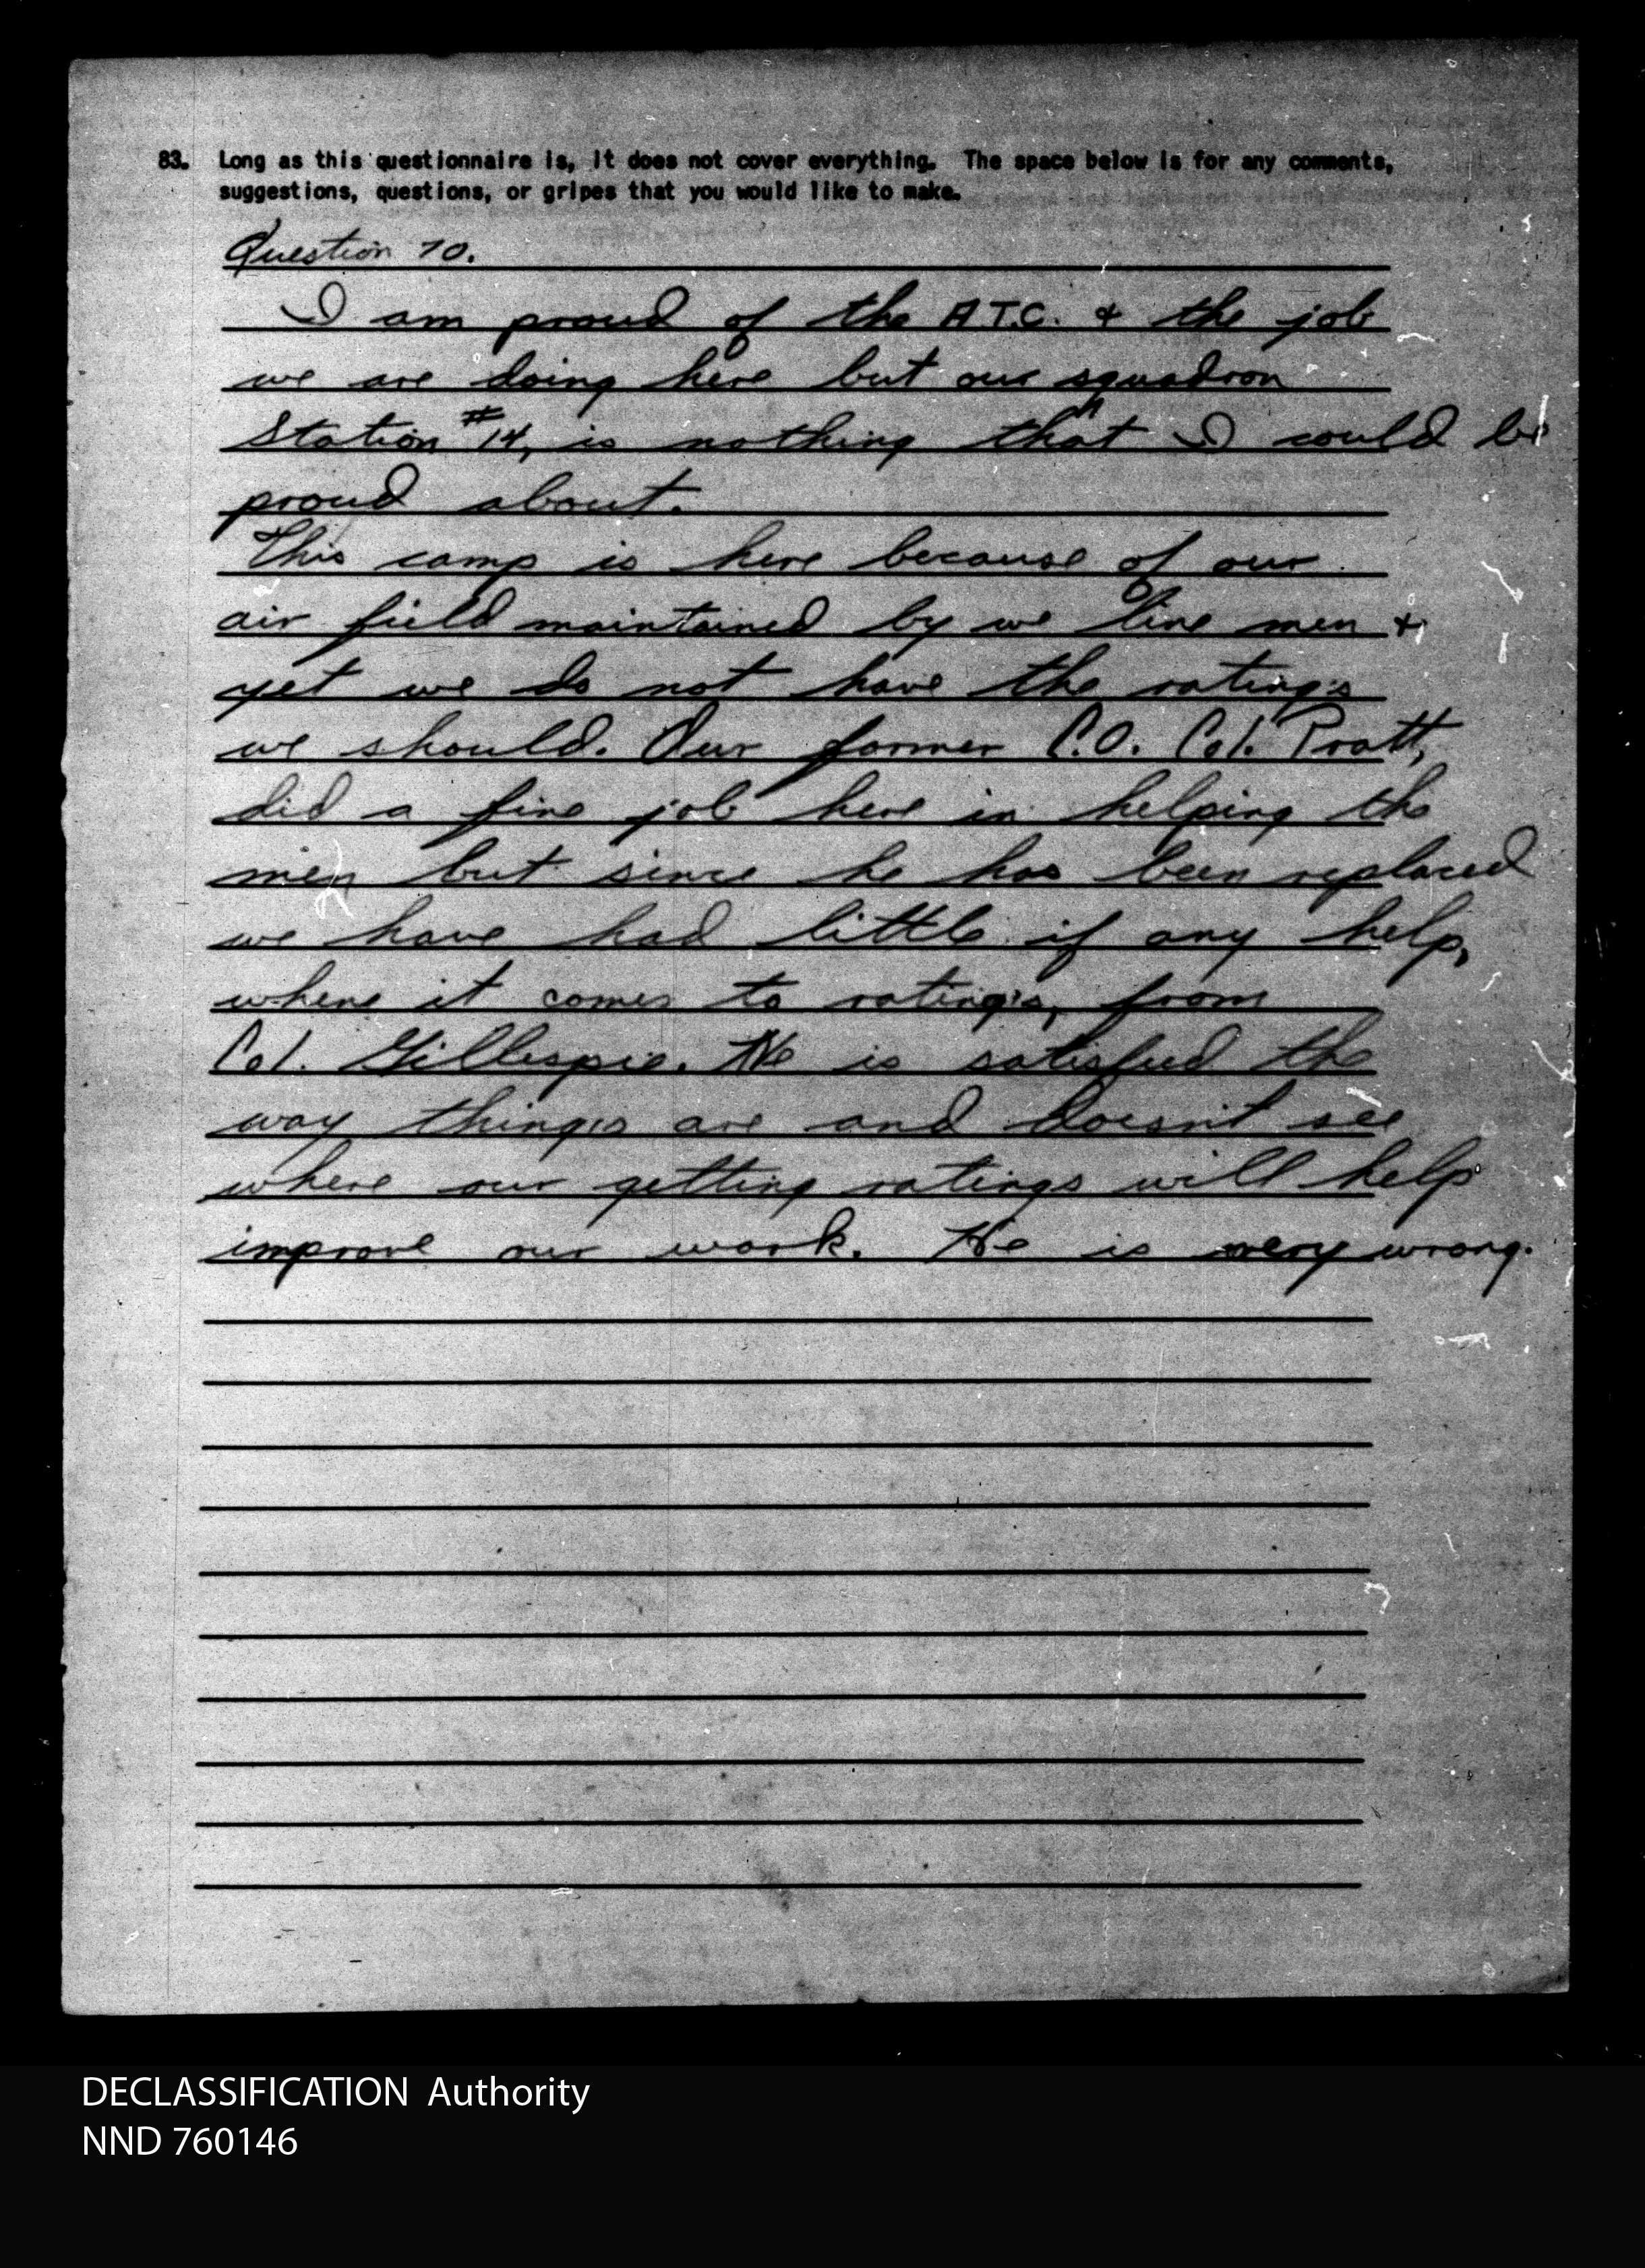 83. Long as this questionnaire is, it does not cover everything. The space below is for any comments,
suggestions, questions, or gripes that you would like to make.
Question 70.
I am proud of the A.T.C. & the job
we are doing here but our squadron
Station #14, is nothing that I could be
proud about.
This camp is here because of our
air field maintained by we line men &
yet we do not have the rating's
we should. Our former C.O. Col. Pratt,
did a fine job here in helping the
men but since he has been replaced
we have had little if any help,
where it comes to rating's, from
Col. Gillespie. He is satisfied the
way things are and doesn't see
where our getting ratings will help
improve our work. He is very wrong.
DECLASSIFICATION Authority
NND 760146